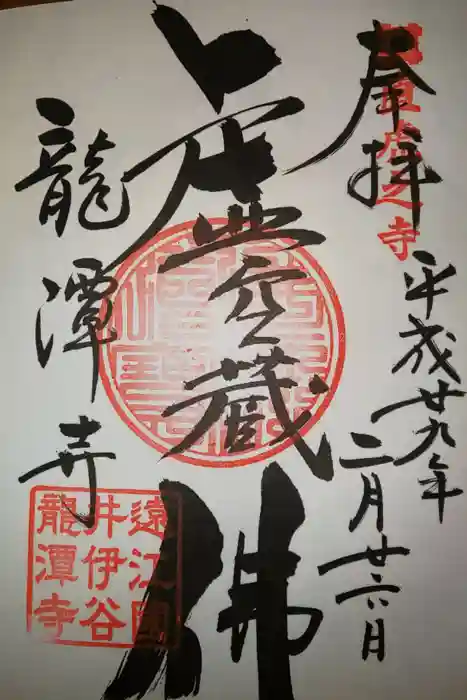 奉拝
直虎之寺
平成廿九年
二月廿六日
虚空蔵佛
龍潭寺
遠江國
井伊谷
龍潭寺